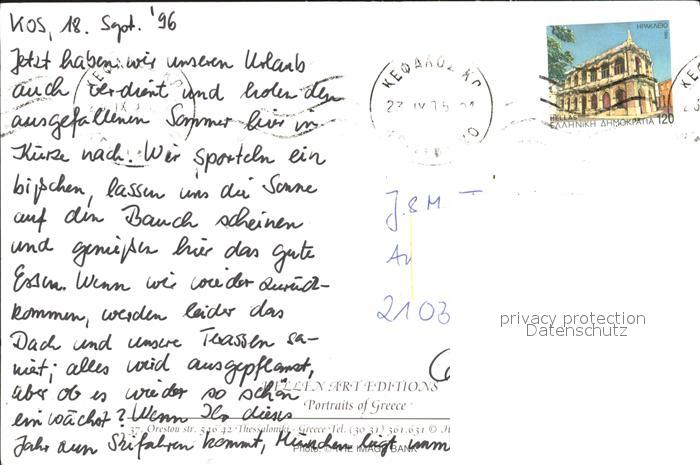 KOS, 18. Sept. '96
Jetzt haben wir unseren Urlaub
auch verdient und holen den
ausgefallenen Sommer hier in
Kürze nach. Wir sporteln ein
bißchen, lassen uns die Sonne
auf den Bauch scheinen
und genießen hier das gute
Essen. Wenn wir wieder zurück-
kommen, werden leider das
Dach und unsere Terassen sa-
niert; alles wird ausgepflanzt,
aber ob es wieder so schön
einwächst? Wenn Ihr dieses
Jahr zum Skifahren kommt, München liegt imm
ΚΕΦΑΛΟΣ ΚΩ
ΗΡΑΚΛΕΙΟ
HELLAS
ΕΛΛΗΝΙΚΗ ΔΗΜΟΚΡΑΤΙΑ 120
J. & M.
2103
privacy protection
Datenschutz
HELLEN ART EDITIONS
'Portraits of Greece'
37, Orestou str. 546 42 Thessaloniki - Greece Tel. (30 31) 361.631 ©
Photo: © THE IMAGE BANK